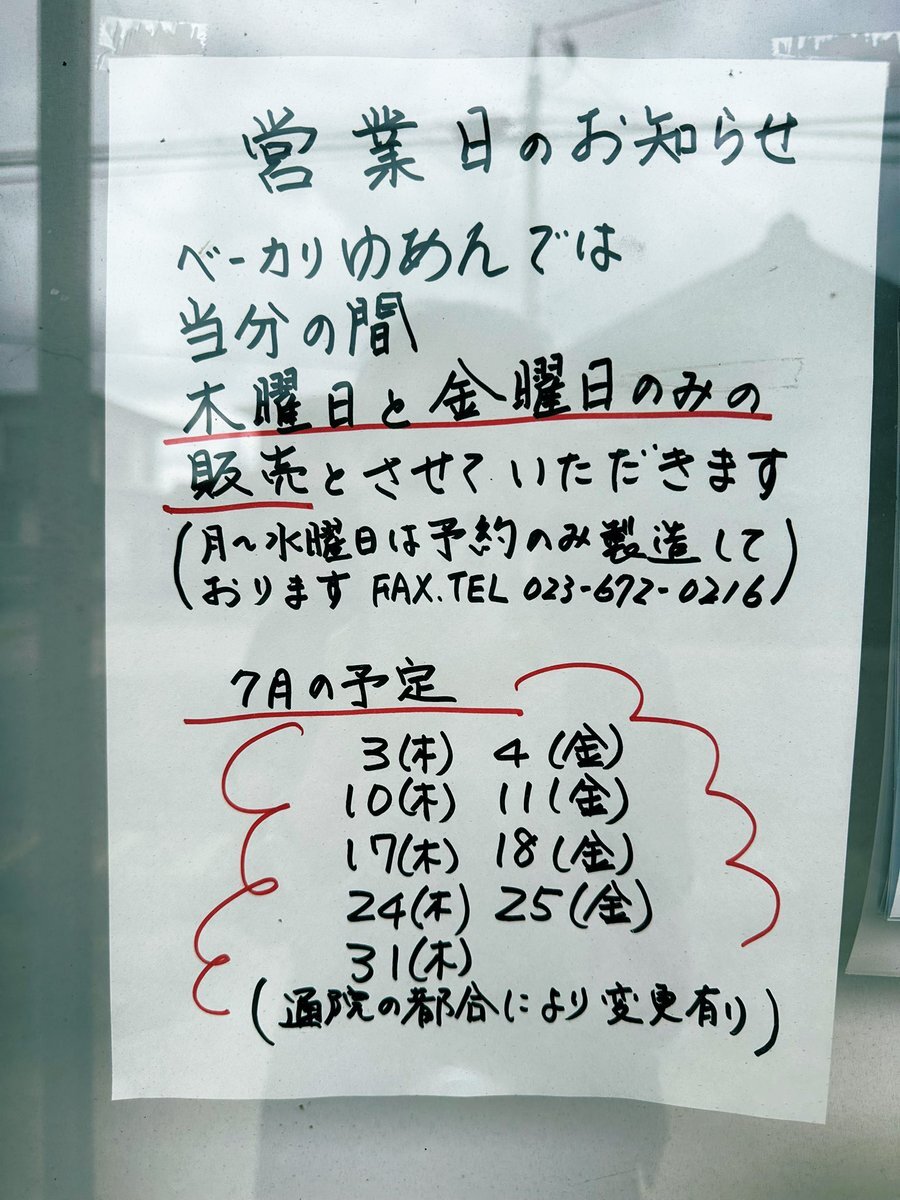 営業日のお知らせ
ベーカリゆめんでは
当分の間
木曜日と金曜日のみの
販売とさせていただきます
(月〜水曜日は予約のみ製造して
おります FAX.TEL 023-672-0216)
7月の予定
3(木) 4(金)
10(木) 11(金)
17(木) 18(金)
24(木) 25(金)
31(木)
(通院の都合により変更有り)